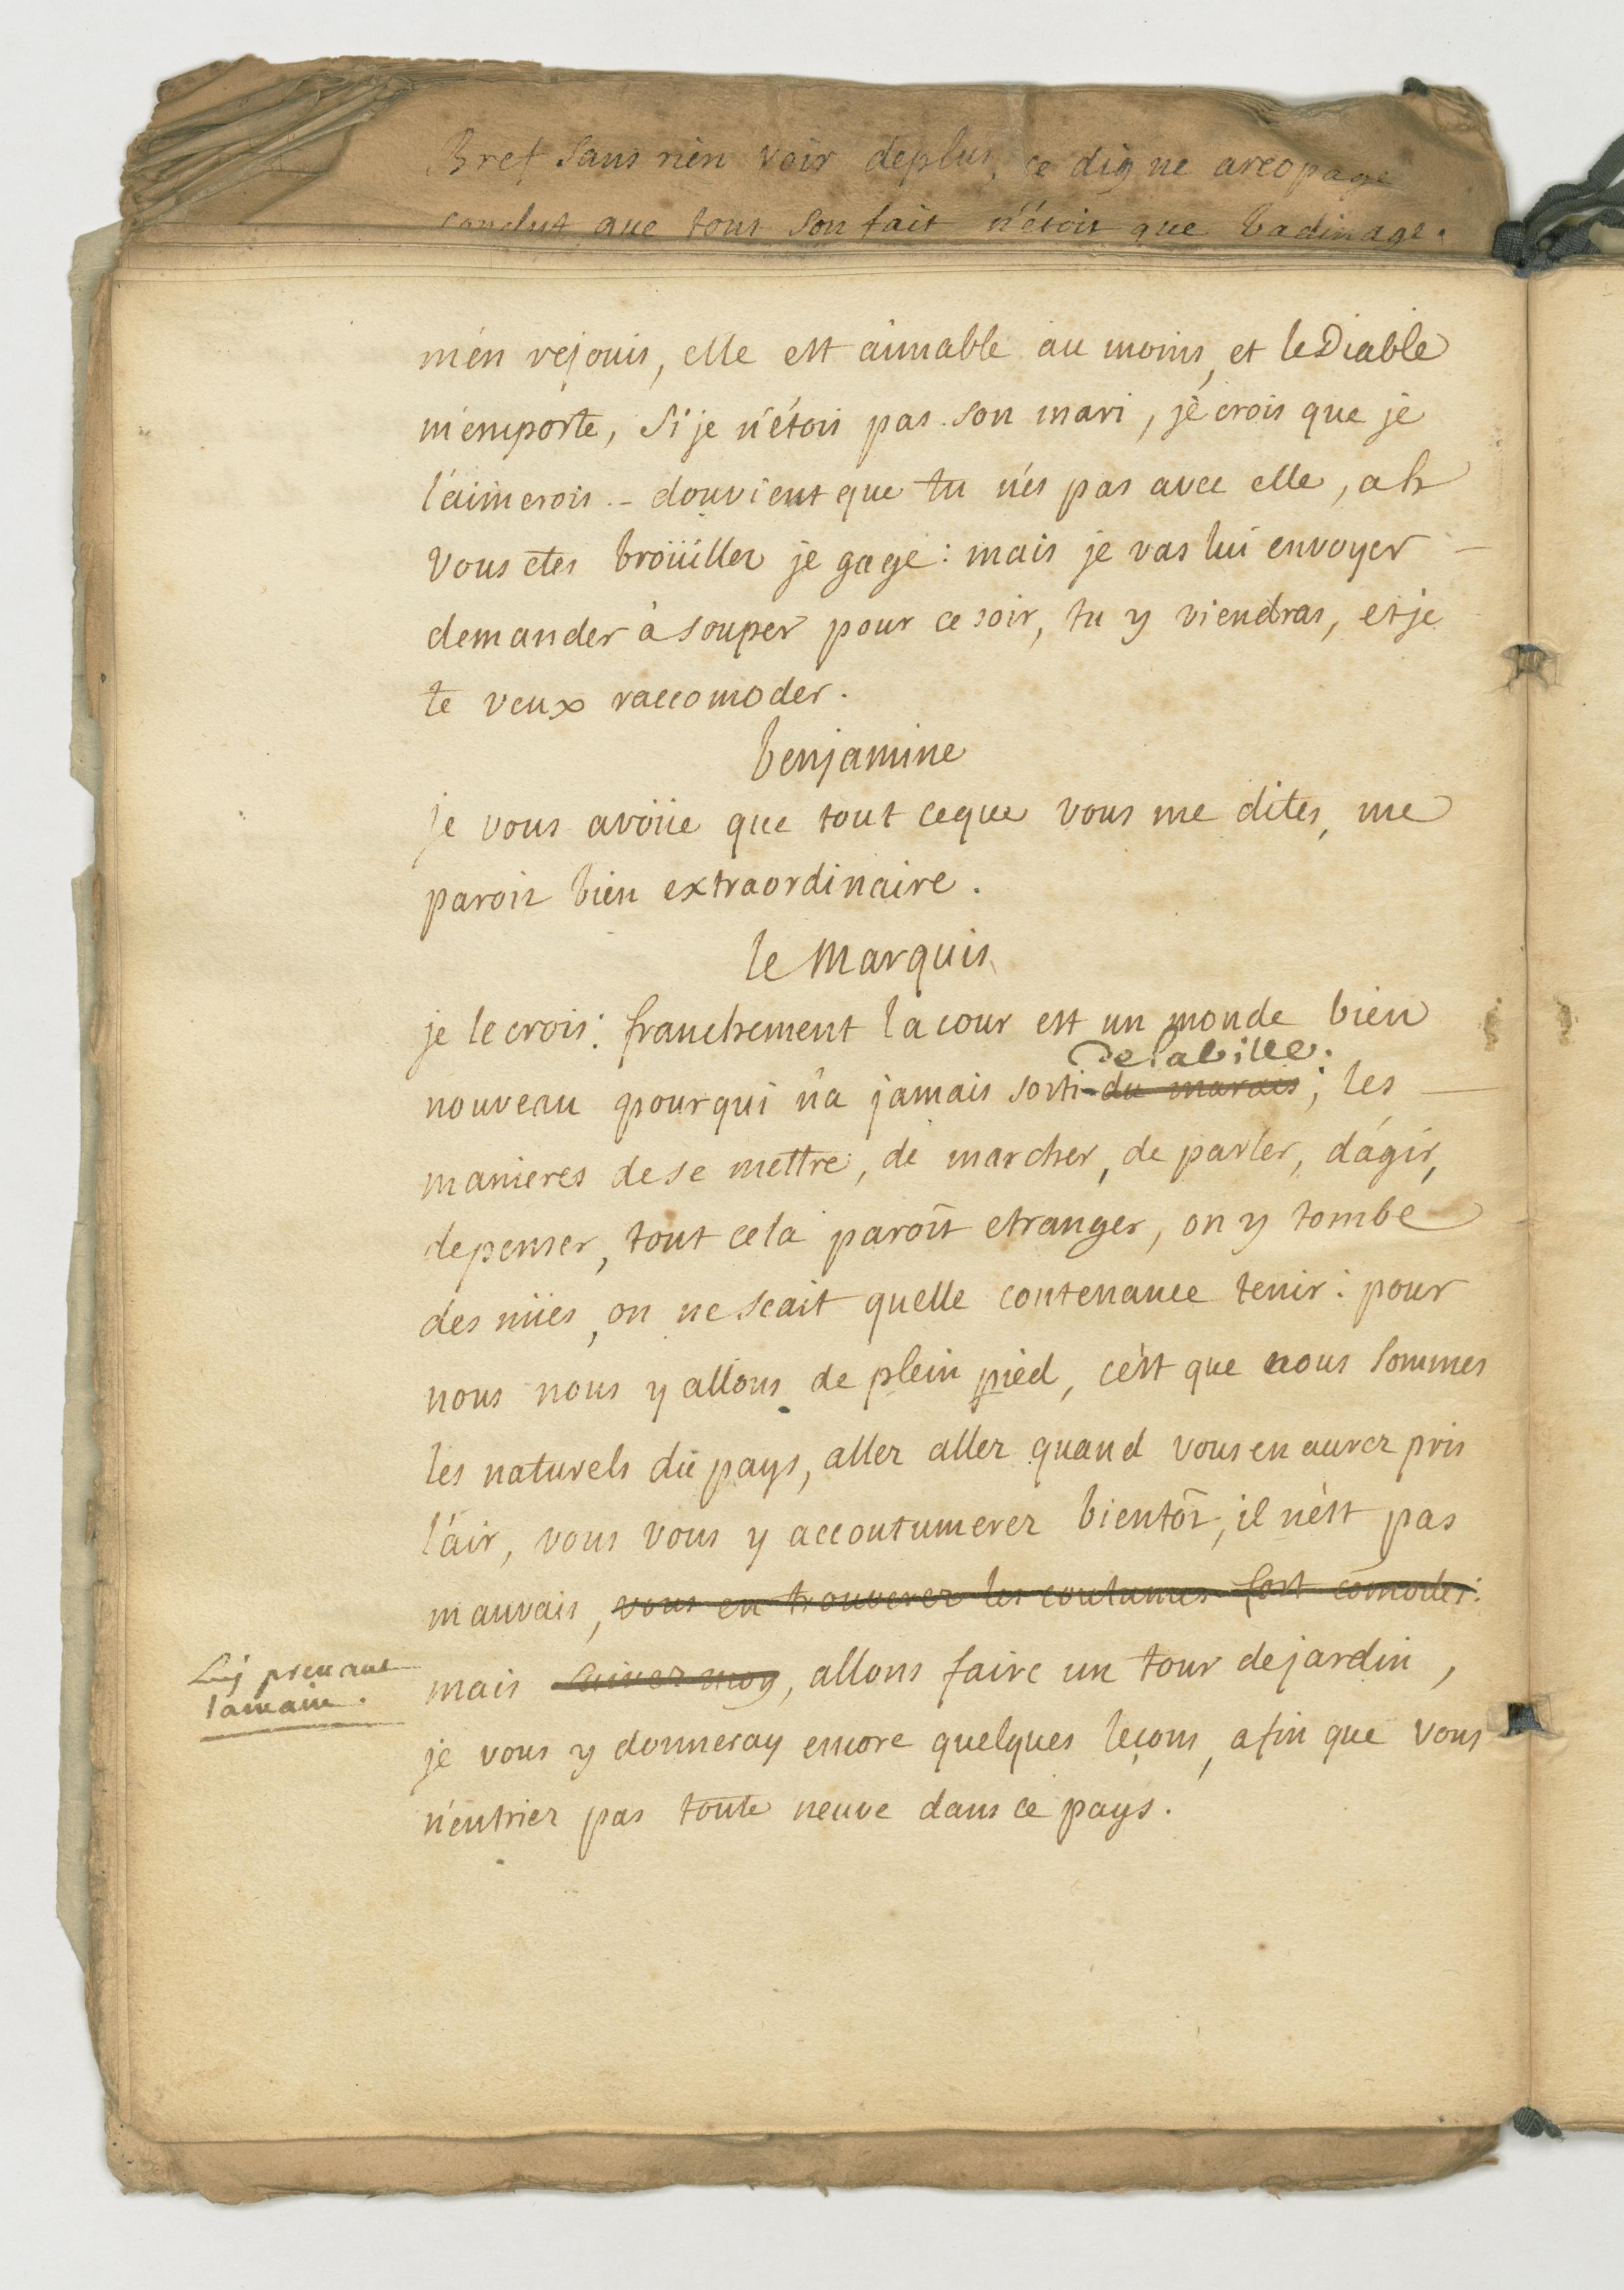 Bref sans rien voir deplus, ce digne areopage
conclut que tout son fait n'étoit que badinage.
m'en rejouis, elle est aimable au moins, et le Diable
m'emporte, si je n'étois pas son mari, je crois que je
l'aimerois. - douvient que tu n'és pas avec elle, ah
vous etes broüillez je gage : mais je vas lui envoyer -
demander à souper pour ce soir, tu y viendras, et je
te veux raccomoder.
benjamine
je vous avoüe que tout ceque vous me dites, me
paroit bien extraordinaire.
le Marquis
je le crois : franchement la cour est un monde bien
de la ville.
nouveau pour qui n'a jamais sorti du marais ; les -
manieres de se mettre, de marcher, de parler, d'agir,
de penser, tout cela paroît etranger, on y tombe
des nües, on ne scait quelle contenance tenir : pour
nous nous y allons de plein pied, c'est que nous sommes
les naturels du pays, allez allez quand vous en aurez pris
l'air, vous vous y accoutumerez bientôt, il n'est pas
mauvais, vous en trouverez les coutumes fort comodes :
Luy prenant
la main.
mais suivez moy, allons faire un tour de jardin,
je vous y donneray encore quelques leçons, afin que vous
n'entriez pas toute neuve dans ce pays.